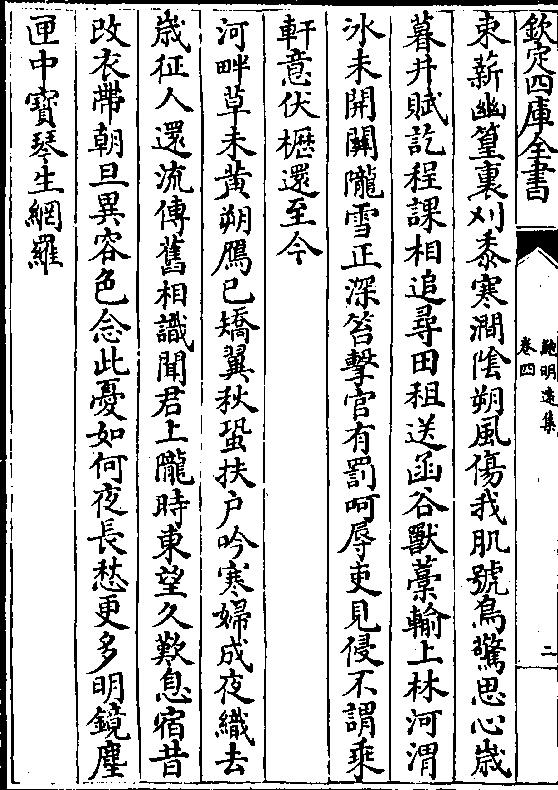 欽定四庫全書
鮑明遠集
卷四
二
束薪幽篁裏刈黍寒澗陰朔風傷我肌號鳥驚思心歲
暮井賦訖程課相追尋田租送函谷獸藁輸上林河渭
冰未開關隴雪正深笞擊官有罰呵辱吏見侵不謂乘
軒意伏櫪還至今
河畔草未黄朔鴈已矯翼秋蛩扶户吟寒婦成夜織去
歲征人還流傳舊相識聞君上隴時東望久歎息宿昔
改衣帶朝旦異容色念此憂如何夜長愁更多明鏡塵
匣中寶琴生網羅